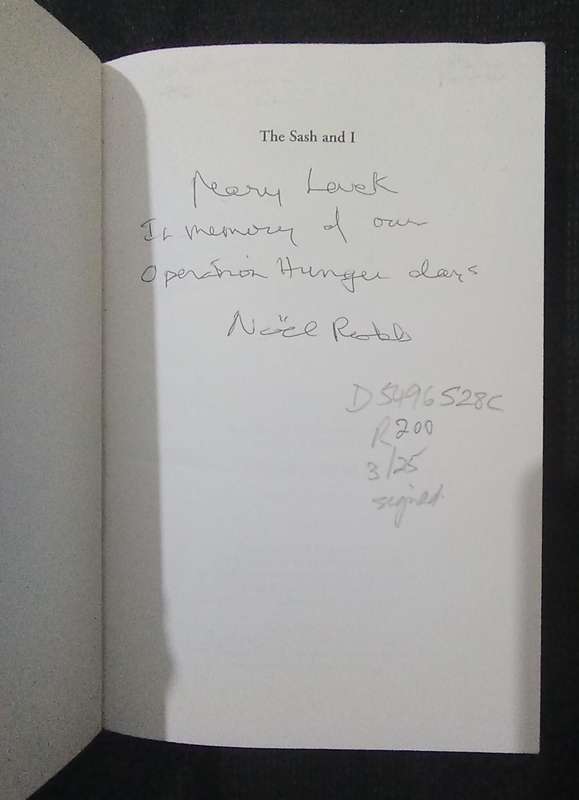 The Sash and I
Mary Levek
In memory of our
Operation Hunger days
Noël Robb
D5496528C
R200
3/25
signed.